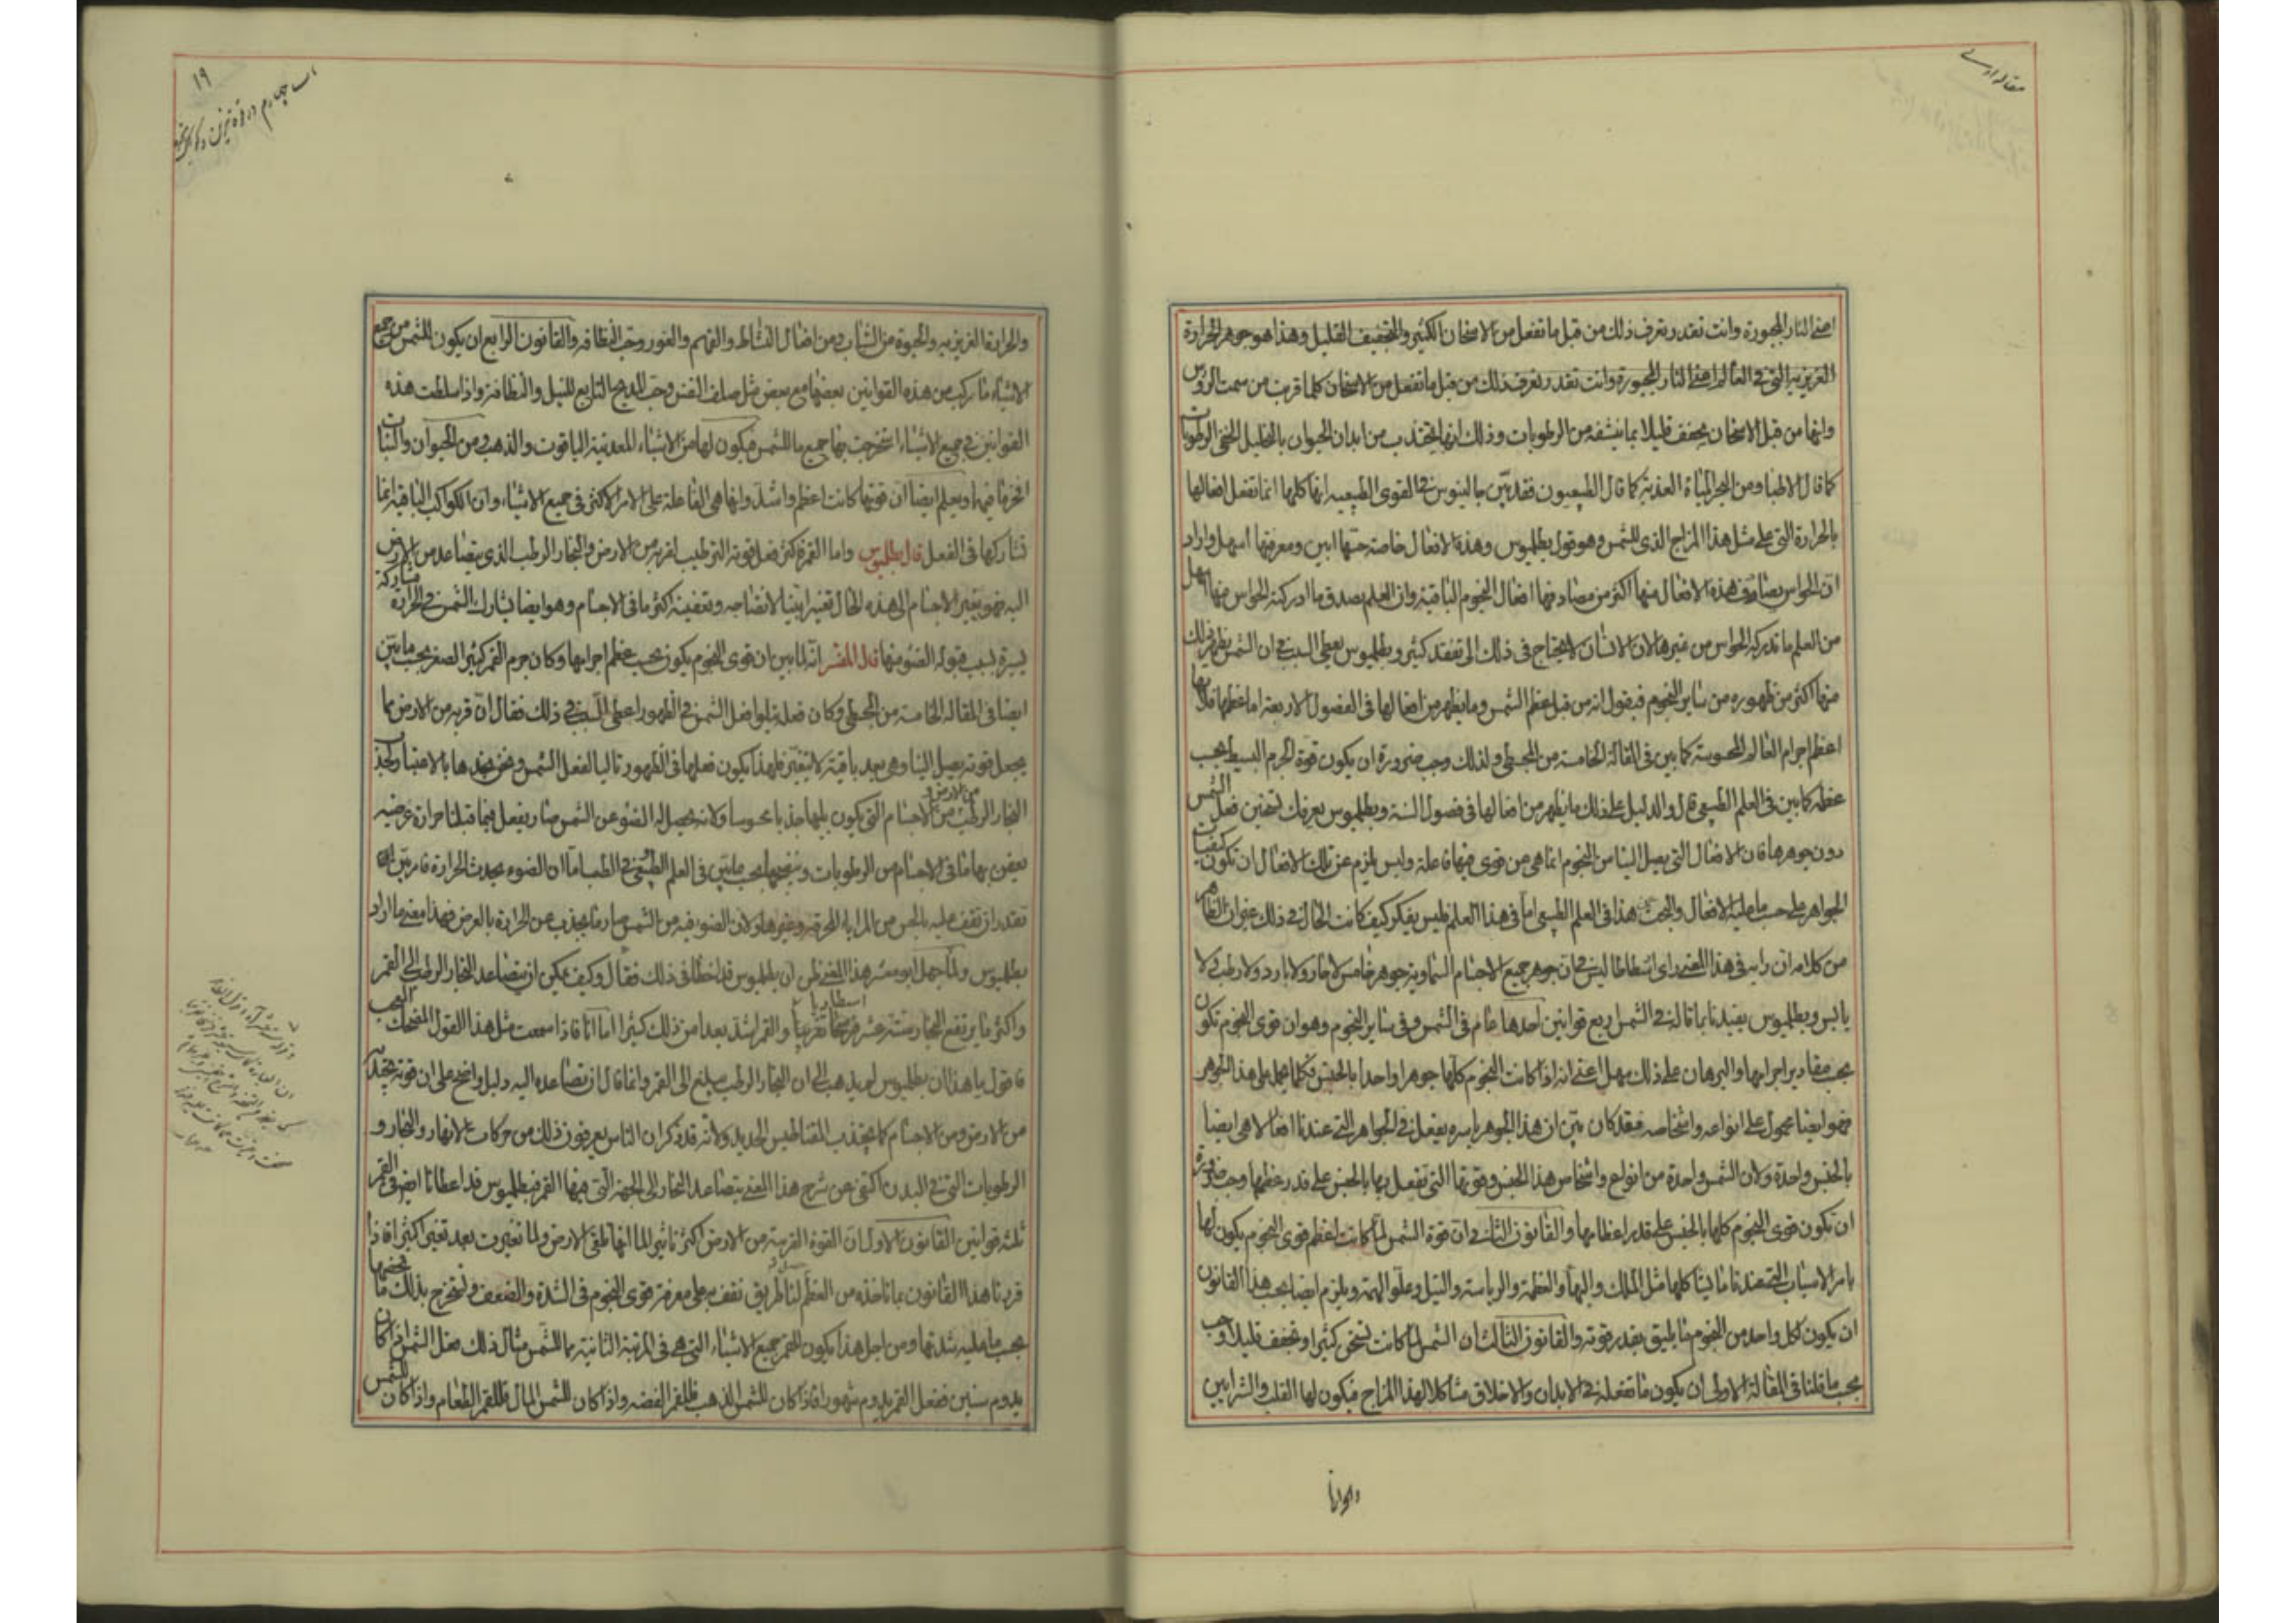 مقاله اولے
اعنے النار المجبورة وانت تقدر تعرف ذلك من قبل ما تفعل من الاسخان الكثير والتجفيف القليل وهذا هو جوهر الحرارة
الغريزية التى فى العالم اعنے النار المجبورة وانت تقدر تعرف ذلك من قبل ما تفعل من الاسخان كلما قربت من سمت الرؤس
وانها من قبل الاسخان يجفف قليلا بما ينشفه من الرطوبات وذلك انها تجتذب من ابدان الحيوان بالتحليل الخفى الرطوبات
كما قال الاطباء ومن البحر المياة العذبة كما قال الطبيعيون فقد بيّن جالينوس فے القوى الطبيعيه انها كلها انما تفعل افعالها
بالحرارة التى على مثل هذا المزاج الذى للشمس وهو قول بطلميوس وهذه الافعال خاصة حسّها ابين ومعرفتها اسهل واراد
ان الحواس تصادف هذه الافعال منها اكثر من مصادفها افعال النجوم الباقية وان العلم يصدق ما ادركته الحواس منها اسهل
من العلم ما تدركه الحواس من غيرها لان الانسان لا يحتاج فى ذلك الى تفقد كثير وبطلميوس يعطى السبب فے ان الشمس يظهر ذلك
منها اكثر من ظهوره من ساير النجوم فيقول انه من قبل عظم الشمس وما يظهر من افعالها فى الفصول الاربعة اما عظمها فلانها
اعظم اجرام العالم المحسوسة كما بين فى المقالة الخامسة من المجسطى ولذلك وجب ضرورة ان يكون قوة الجرم البسيط بحسب
عظمه كما بين فى العلم الطبيعى قال والدليل على ذلك ما يظهر من افعالها فى فصول السنة وبطلميوس يعرفك تسخين فعل الشمس
دون جوهرها فان الافعال التى يصل الينا من النجوم انما هى من قوى فيها فاعلة وليس يلزم عن تلك الافعال ان تكون كيفيات
الجواهر على حسب ما عليه الافعال والبحث عن هذا فى العلم الطبيعى اما فى هذا العلم فليس يفكر كيف كانت الحال فے ذلك غير ان الظاهر
من كلامه ان رايه فى هذا المعنے راى ارسطاطاليس فے ان جوهر جميع الاجسام السماوية جوهر خامس لا حار ولا بارد ولا رطب ولا
يابس وبطلميوس يفيدنا بما قاله فے الشمس اربع قوانين احدها عام فى الشمس وفى ساير النجوم وهو ان قوى النجوم تكون
بحسب مقادير اجرامها والبرهان على ذلك سهل اعنے انه اذا كانت النجوم كلها جوهرا واحدا بالجنس فكلما يحمل على هذا الجوهر
فهو ايضا محمول على انواعه واشخاصه فقد كان بيّن ان هذا الجوهر باسره يفعل فے الجواهر التے عندنا افعالا هى ايضا
بالجنس واحدة ولان الشمس واحدة من انواع واشخاص هذا الجنس وقوتها التى تفعل بها بالجنس على قدر عظمها وجب ضرورة
ان تكون قوى النجوم كلها بالجنس على قدر اعظامها والقانون الثانے ان قوة الشمس لما كانت اعظم قوى النجوم يكون لها
بامر الاسباب التى عندنا ما ليثا كلها مثل الملك والبهاء والعظمة والرياسة والنيل وعلو الهمة ويلزم ايضا بحسب هذا القانون
ان يكون لكل واحد من النجوم ما يليق بقدر قوته والقانون الثالث ان الشمس لما كانت تسخن كثيرا وتجفف قليلا وجب
بحسب ما قلنا فى المقالة الاولى ان يكون ما تفعله فے الابدان والاخلاق مشاكلا لهذا المزاج فيكون لها القلب والشرايين
والحرارة
١٩
والحرارة الغريزيه والحيوة من الشباب ومن افعال النشاط والفهم والغور وحب النظافه والقانون الرابع ان يكون للشمس من جميع
الاشياء ما تركب من هذه القوانين بعضها مع بعض مثل صلف النفس وحب المدح التابع للنبل والنظافة واذا سلطت هذه
القوانين فے جميع الاشياء استخرجت بها جميع ما للشمس فيكون لها من الاشياء المعدنية الياقوت والذهب ومن الحيوان والنبات
افخر ما فيها ويعلم ايضا ان قوتها كانت اعظم واشد وانها هى الفاعلة على الامر الاكثر فى جميع الاشياء وان الكواكب الباقيه انما
تشاركها فى الفعل قال بطلميوس واما القمر فاكثر فعل قوته الترطيب لقربه من الارض والبخار الرطب الذى يتصاعد من الارض
اليه فهو يغير الاجسام الى هذه الحال تغيرا بينا لانضاجه وتعفينه اكثر ما فى الاجسام وهو ايضا يشارك الشمس فے الحرارة مشاركة
يسيرة بسبب قبوله الضوء منها قال المفسر انه لما بين ان قوى النجوم يكون بحسب عظم اجرامها وكان جرم القمر كثير الصغر بحسب ما بيّن
ايضا فى المقالة الخامسة من المجسطى وكان فعله يتلوا فعل الشمس فے الظهور اعطى السبب فے ذلك فقال ان قربه من الارض مما
يجعل قوته يصل الينا وهى بعد باقية لا تتغير فلهذا يكون فعلها فى الظهور تاليا لفعل الشمس ونحن نجدها بالاعتبار تجذب
البخار الرطب من الارض ومن الاجسام التى يكون يليها جذبا محسوسا ولانه يصل له الضوء عن الشمس صار يفعل فيما قبلنا حرارة عرضيه
يعفن بها ما فى الاجسام من الرطوبات وينضجها بحسب ما بيّن فى العلم الطبيعى فے الطب اما ان الضوء يحدث الحرارة فامر بيّن
تقدر ان تقف عليه بالحس من المرايا المحرقه وغيرها ولان الضوء فيه من الشمس صار ما يجذب عن الحرارة بالعرض فهذا معنے ما اراد
بطلميوس ولما جهل ابو معشر هذا المعنے ظن ان بطلميوس قد اخطا فى ذلك فقال وكيف يمكن ان يتصاعد البخار الرطب الى القمر
اسطادياً
واكثر ما يرتفع البخار ستة عشر فرسخا تقريبا والقمر اشد بعدا من ذلك كثيرا اما انا فاذا سمعت مثل هذا القول المضحك العجب
فاقول يا هذا ان بطلميوس لم يذهب الى ان البخار الرطب يبلغ الى القمر وانما قال ان تصاعده اليه دليل واضح على ان قوته تجتذب
من الارض ومن الاجسام كما يجتذب المغناطيس الحديد ولانه قد ذكر ان الناس يعرفون ذلك من حركات الانهار والبحار و
الرطوبات التى فے البدن اكتفى عن شرح هذا المعنے يتصاعد البخار الى الجهة التى فيها القمر فبطلميوس قد اعطانا ايضا فى القمر
ثلثه قوانين القانون الاول ان القوة القريبة من الارض اكثر تاثيرا لما انها تلقى الارض ولما تغيرت بعد تغير كثيرا فاذا
قرنا هذا القانون بما ناخذه من العظم لنا طريق نقف به على معرفة قوى النجوم فى الشدة والضعف ونستخرج بذلك ما يخصها
بحسب ما عليه شدتها ومن اجل هذا يكون للقمر جميع الاشياء التى هى فى المرتبة الثانية مما للشمس مثال ذلك فعل الشمس اذا كان
يدوم سنين ففعل القمر يدوم شهورا فاذا كان للشمس الذهب فللقمر الفضه واذا كان للشمس المال فللقمر الطعام واذا كان للشمس